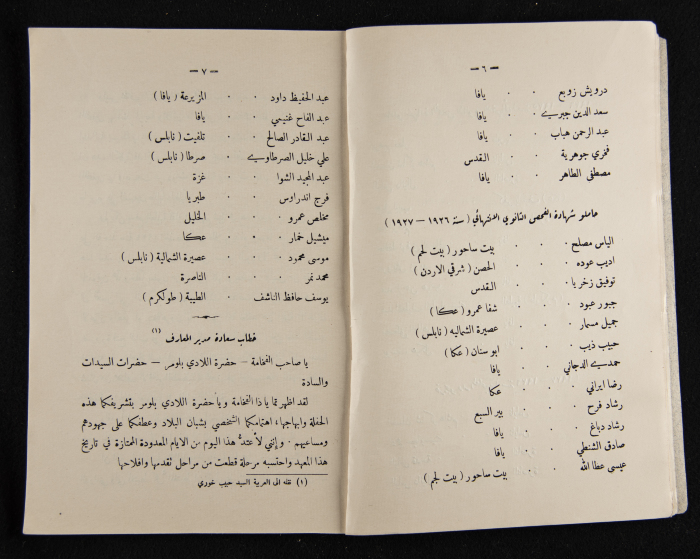 — ٦ —
درويش زويع · · يافا
سعد الدين جبريه · · يافا
عبد الرحمن هباب · · يافا
فخري جوهرية · · القدس
مصطفى الطاهر · · يافا
حاملو شهادة الفحص الثانوي الانتهائي ( سنة ١٩٢٦ — ١٩٢٧ )
الياس مصلح · · بيت ساحور ( بيت لحم )
اديب عوده · · الحصن ( شرقي الاردن )
توفيق زخريا · · القدس
جبور عبود · · شفا عمرو ( عكا )
جميل مسمار · · عصيرة الشماليه ( نابلس )
حبيب ذيب · · ابو سنان ( عكا )
حمدي الدجاني · · يافا
رضا ايراني · · عكا
رشاد فرح · · بير السبع
رشاد دباغ · · يافا
صادق الشنطي · · يافا
عيسى عطا الله · · بيت ساحور ( بيت لحم )
— ٧ —
عبد الحفيظ داود · · المزيرعة ( يافا )
عبد الفتاح غنيمي · · يافا
عبد القادر الصالح · · تلفيت ( نابلس )
علي خليل الصرطاوي · صرطا ( نابلس )
عبد المجيد الشوا · · غزة
فرج اندراوس · · طبريا
مخلص عمرو · · الخليل
ميشيل خمار · · عكا
موسى محمود · عصيرة الشمالية ( نابلس )
محمد نمر · · الناصرة
يوسف حافظ الناشف · الطيبة ( طولكرم )
خطاب سعادة مدير المعارف (١)
يا صاحب الفخامة — حضرة اللادي بلومر — حضرات السيدات
والسادة
لقد اظهرتما يا ذا الفخامة ويا حضرة اللادي بلومر بتشريفكما هذه
الحفلة وابهاجها، اهتمامكما الشخصي بشبان البلاد وعطفكما على جهودهم
ومساعيهم . وإنني لأعتدُّ هذا اليوم من الايام المعدودة الممتازة في تاريخ
هذا المعهد واحتسبه مرحلة قطعت من مراحل تقدمها وافلاحها
(١) نقله الى العربية السيد حبيب خوري